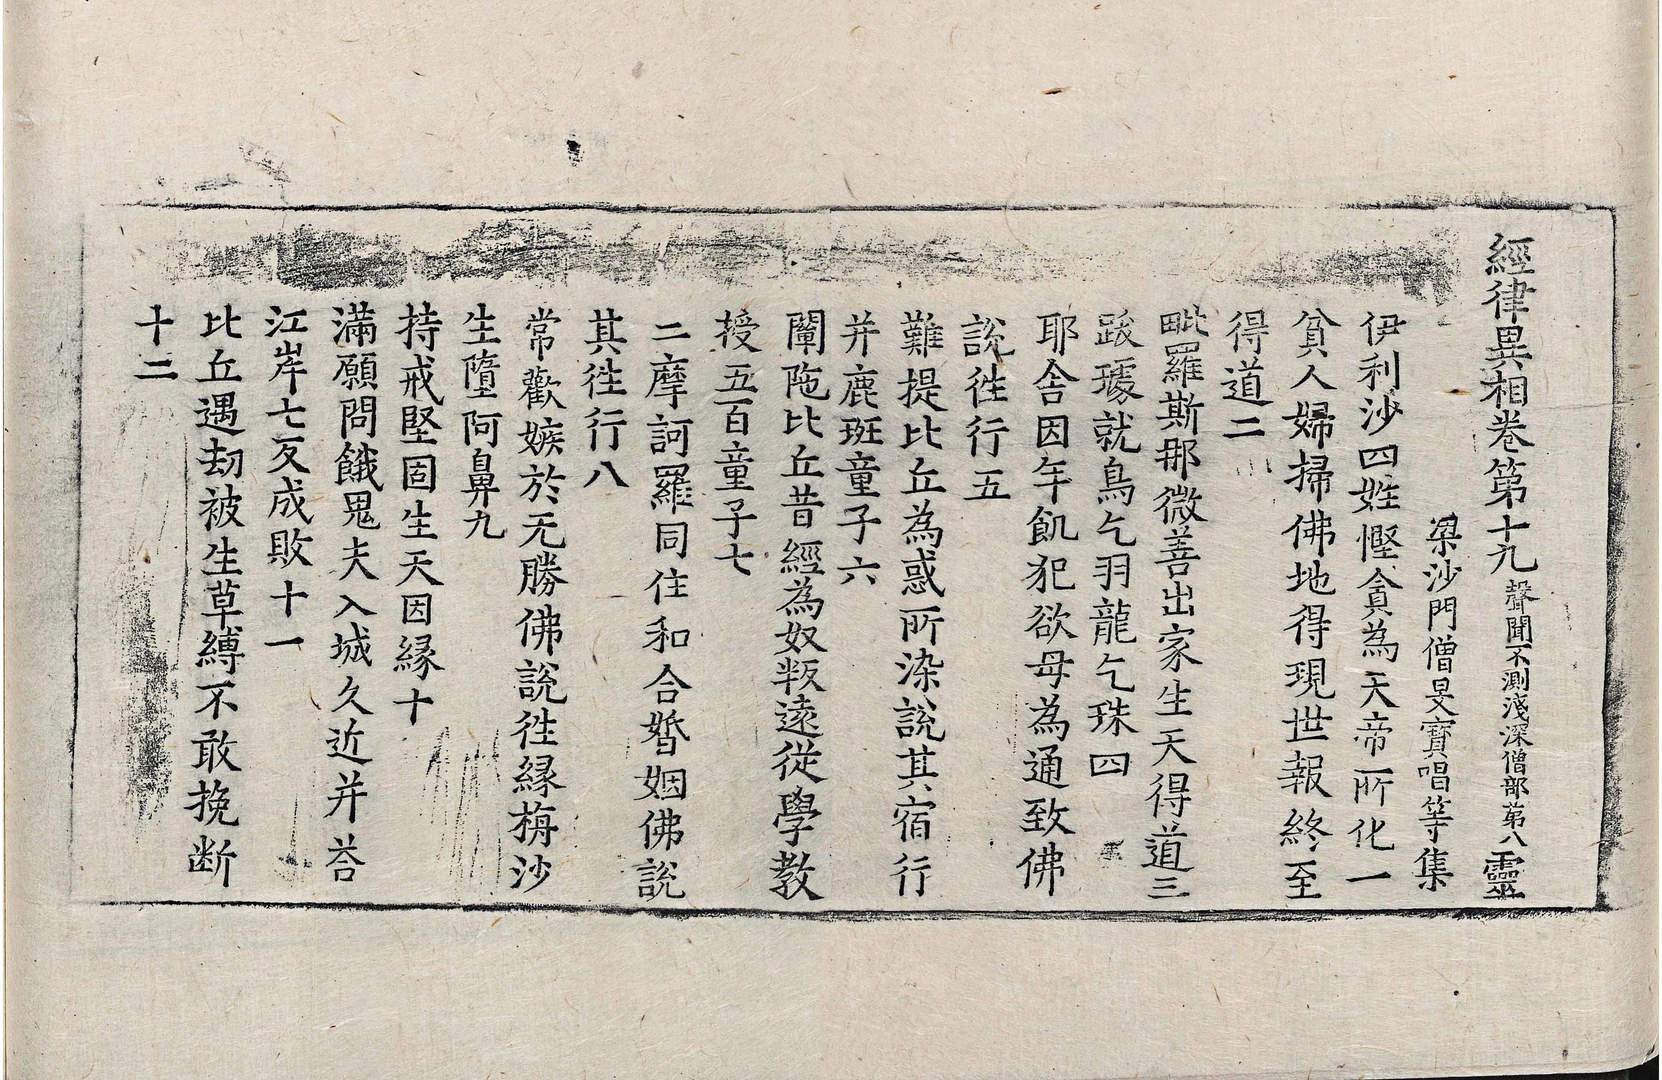 經律異相卷第十九 聲聞不測淺深僧部第八 靈
梁沙門僧旻寶唱等集
伊利沙四姓慳貪為天帝所化一
貧人婦掃佛地得現世報終至
得道二
毗羅斯那微善出家生天得道三
跋璩就鳥乞羽龍乞珠四
耶舍因年飢犯欲母為通致佛
說徃行五
難提比丘為惑所染說其宿行
并鹿斑童子六
闡陁比丘昔經為奴叛遠從學教
授五百童子七
二摩訶羅同住和合婚姻佛說
其徃行八
常歡嫉於无勝佛說徃緣栴沙
生墮阿鼻九
持戒堅固生天因緣十
滿願問餓鬼夫入城久近并荅
江岸七反成敗十一
比丘遇劫被生草縛不敢挽断
十二